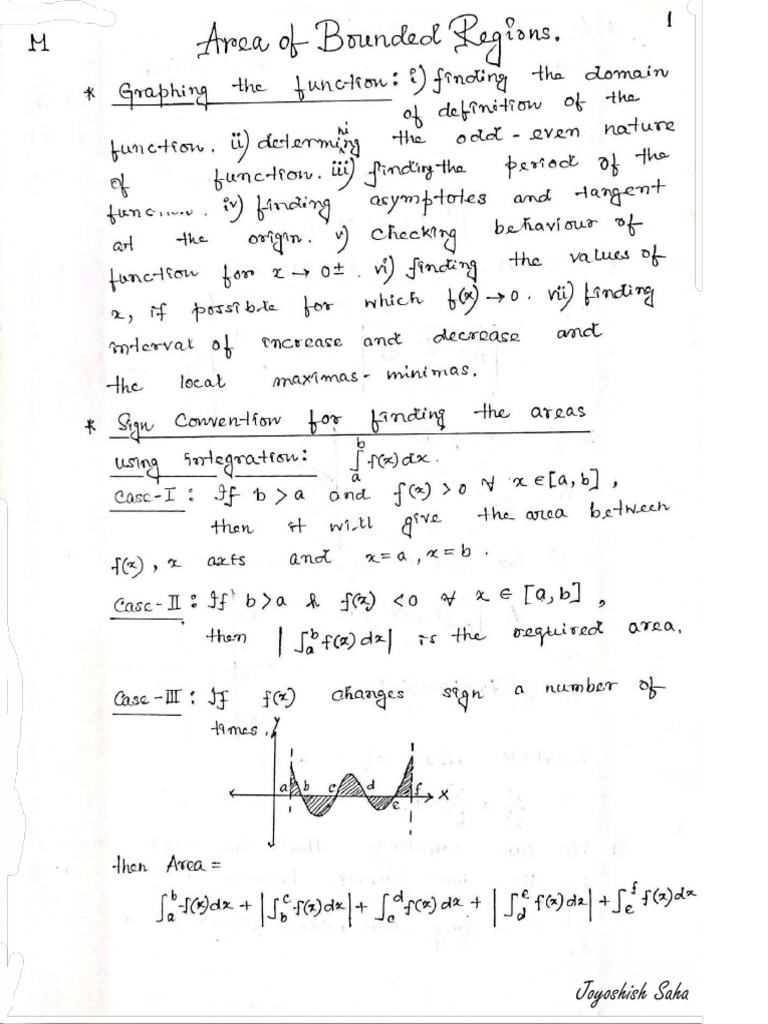 M
Area of Bounded Regions.
1
* Graphing the function: i) finding the domain
of definition of the
function. ii) determining the odd-even nature
of function. iii) finding the period of the
iv) finding asymptotes and tangent
at the origin. v) checking behaviour of
function for x → 0±. vi) finding the values of
x, if possible for which f(x) → 0. vii) finding
interval of increase and decrease and
the local maximas-minimas.
* Sign Convention for finding the areas
using integration: ∫ₐᵇ f(x)dx.
Case-I : If b > a and f(x) > 0 ∀ x ∈ [a, b] ,
then it will give the area between
f(x), x axis and x=a, x=b.
Case-II : If b>a & f(x) <0 ∀ x ∈ [a,b] ,
then |∫ₐᵇ f(x)dx| is the required area.
Case-III : If f(x) changes sign a number of
times.
Y
a b c d e f X
then Area =
∫ₐᵇ f(x)dx + |∫_b^c f(x)dx| + ∫_c^d f(x)dx + |∫_d^e f(x)dx| + ∫_e^f f(x)dx
Joyoshish Saha